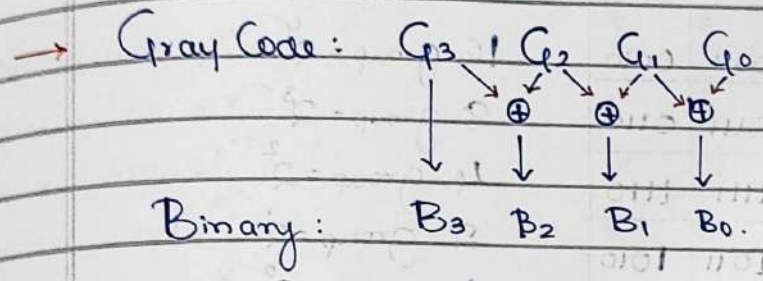 → Gray Code: G3 G2 G1 G0
⊕ ⊕ ⊕
Binary: B3 B2 B1 B0.